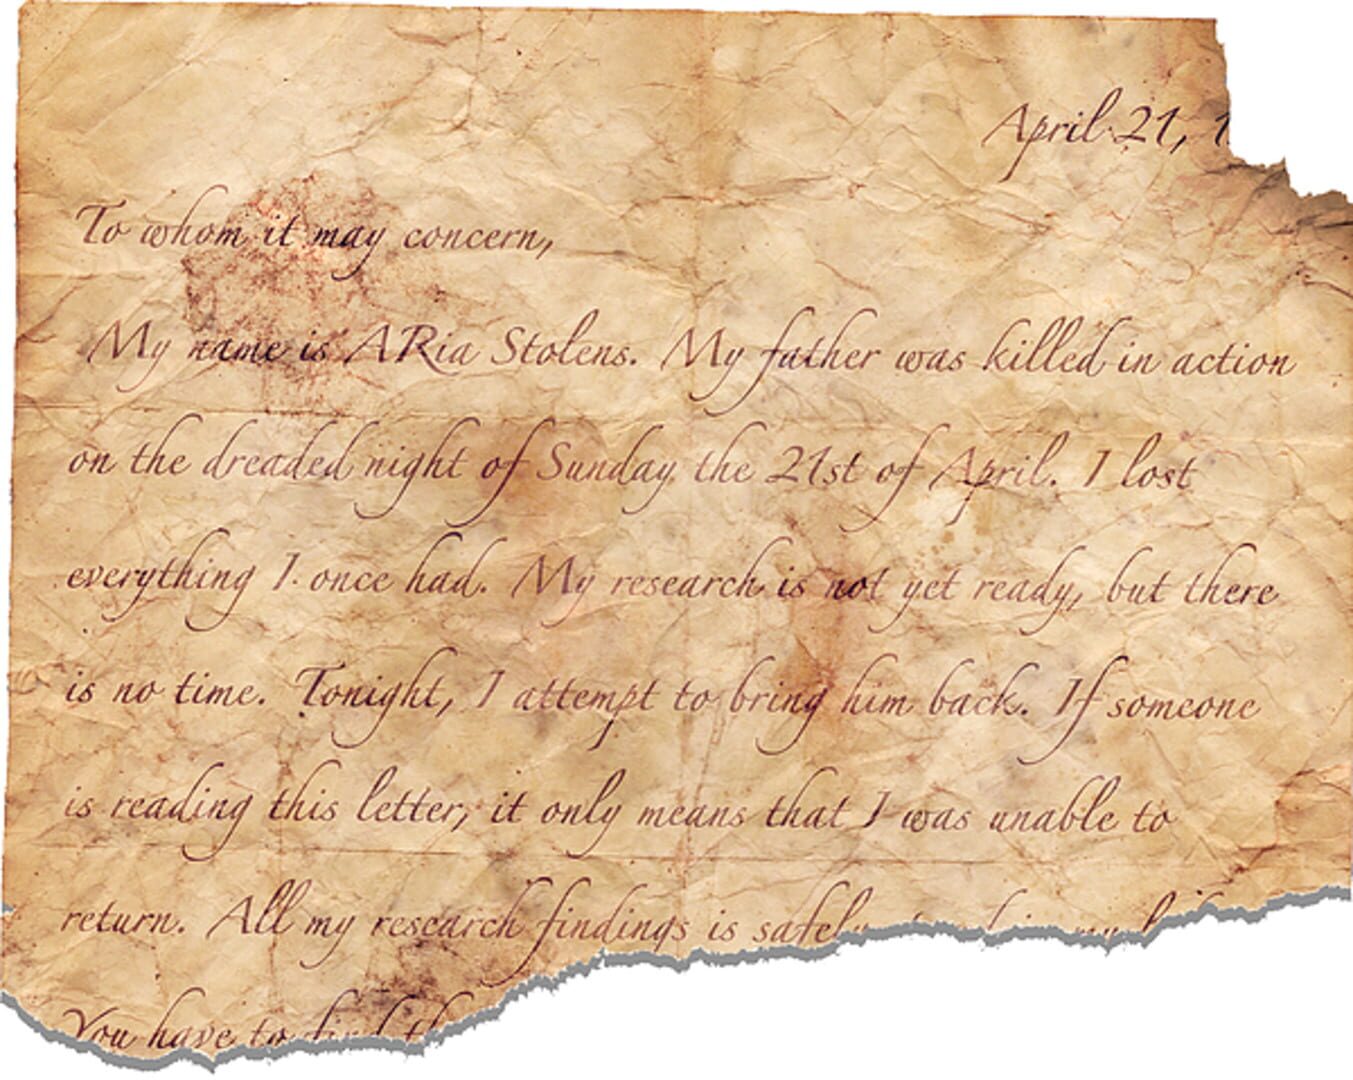 April 21, 1
To whom it may concern,
My name is ARia Stolens. My father was killed in action
on the dreaded night of Sunday the 21st of April. I lost
everything I once had. My research is not yet ready, but there
is no time. Tonight, I attempt to bring him back. If someone
is reading this letter, it only means that I was unable to
return. All my research findings is safely my
You have to find